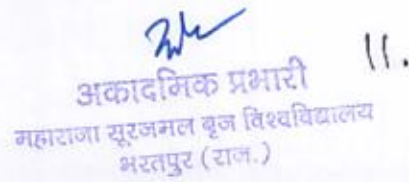 11.
अकादमिक प्रभारी
महाराजा सूरजमल बृज विश्वविद्यालय
भरतपुर (राज.)